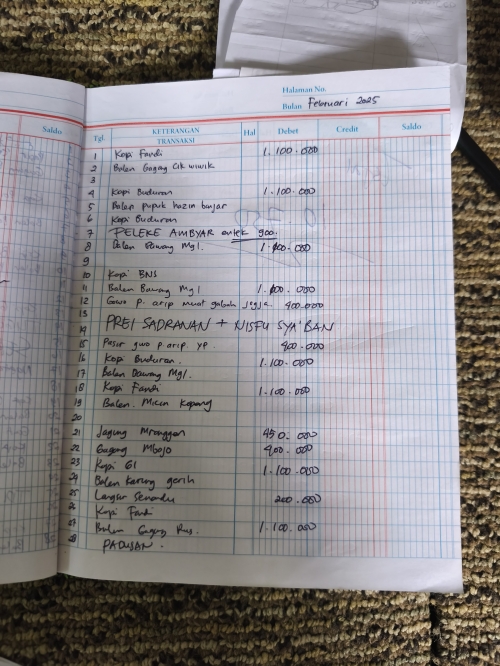 Halaman No.
Bulan Februari 2025
Saldo
Tgl. KETERANGAN TRANSAKSI Hal Debet Credit Saldo
1 Kopi Fandi 1.100.000
2 Balen Gagang Cik wiwik
3
4 Kopi Buduran 1.100.000
5 Balen pupuk hazin banjar
6 Kopi Buduran
7 PELEKE AMBYAR entek 900.
8 Balen Bawang Mgl. 1.100.000
9
10 Kopi BNS
11 Balen Bawang Mgl 1.100.000
12 Gowo p. arip muat gabah jogja. 400.000
13
14 PREI SADRANAN + NISFU SYA'BAN
15 Pasir gwo p. arip. yp. 400.000
16 Kopi Buduran. 1.100.000
17 Balen Bawang Mgl.
18 Kopi Fandi 1.100.000
19 Balen. Micin Kopeng
20
21 Jagung Mranggen 450.000
22 Gagang Mbojo 400.000
23 Kopi G1 1.100.000
24 Balen karung gerih
25 Langsir Senandu 200.000
26 Kopi Fandi
27 Balen Gagang Rus. 1.100.000
28 PADUSAN.